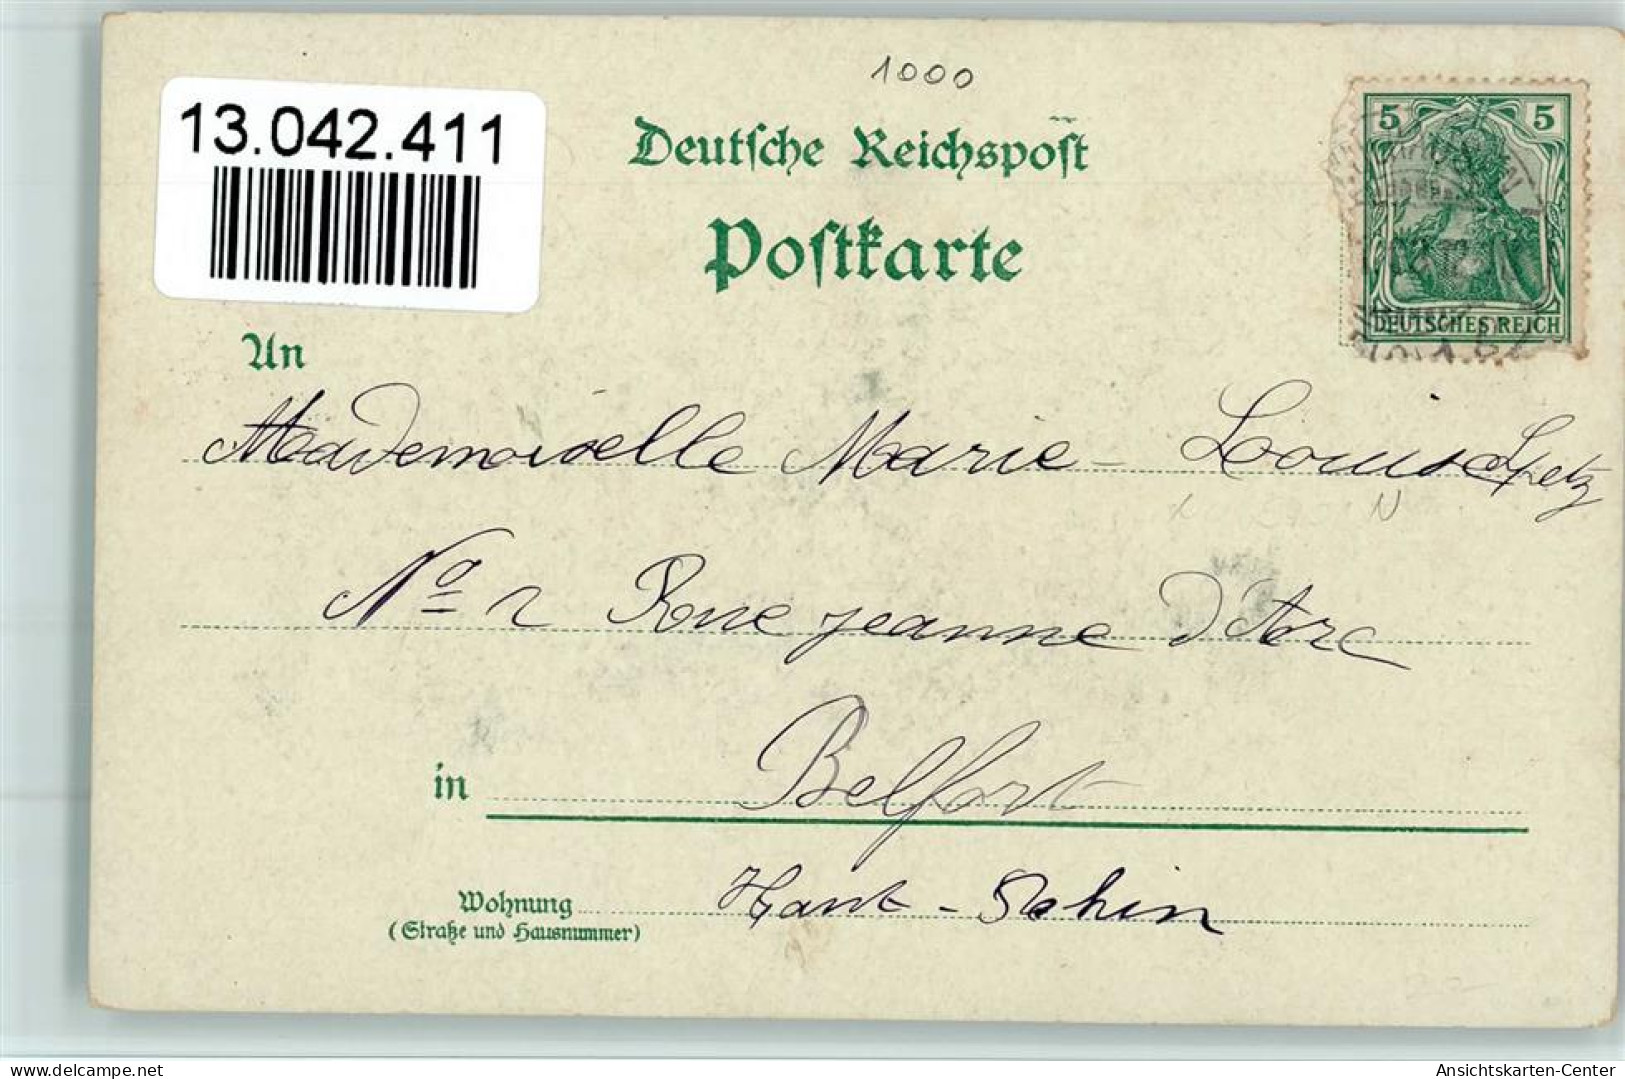 1000
13.042.411
Deutsche Reichspost
Postkarte
5 5
DEUTSCHES REICH
An
Mademoiselle Marie-Louise Spetz
No 2 Rue jeanne d'Arc
in Belfort
Wohnung Haut-Rhin
(Straße und Hausnummer)
delcampe.net
Ansichtskarten-Center